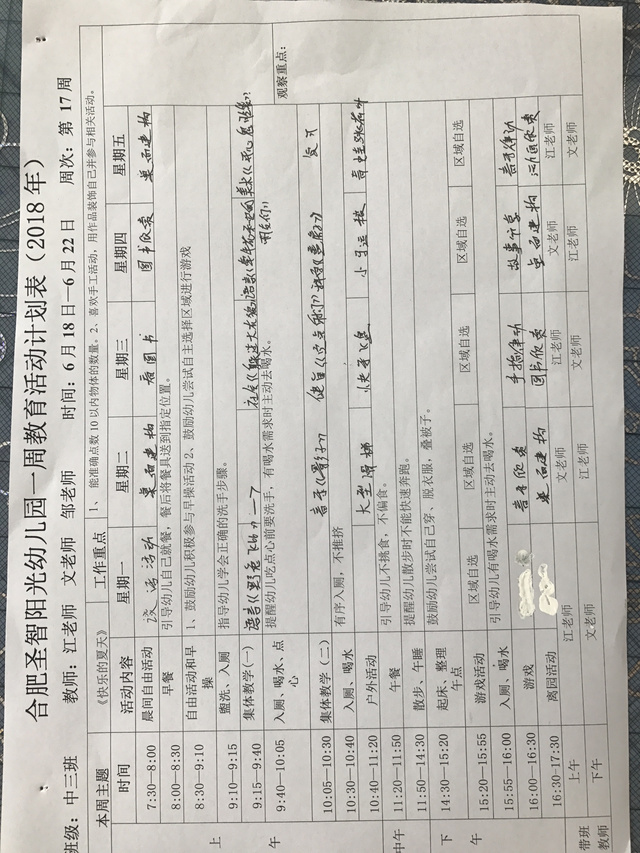 合肥圣智阳光幼儿园一周教育活动计划表（2018年）
班级：中三班 教师：江老师 文老师 邹老师 时间：6月18日—6月22日 周次：第 17 周
本周主题 《快乐的夏天》 工作重点 1、能准确点数10以内物体的数量。2、喜欢手工活动，用作品装饰自己并参与相关活动。
时间 活动内容 星期一 星期二 星期三 星期四 星期五 观察重点：
上午
7:30—8:00 晨间自由活动 谈话活动 桌面建构 看图书 图书欣赏 桌面建构
8:00—8:30 早餐 引导幼儿自己就餐，餐后将餐具送到指定位置。
8:30—9:10 自由活动和早操 1、鼓励幼儿积极参与早操活动2、鼓励幼儿尝试自主选择区域进行游戏
9:10—9:15 盥洗、入厕 指导幼儿学会正确的洗手步骤。
9:15—9:40 集体教学(一)
9:40—10:05 入厕、喝水、点心 提醒幼儿吃点心前要洗手，有喝水需求时主动去喝水。
10:05—10:30 集体教学（二）
10:30—10:40 入厕、喝水 有序入厕，不推挤
10:40—11:20 户外活动 大型滑梯
中午
11:20—11:50 午餐 引导幼儿不挑食，不偏食。
11:50—14:30 散步、午睡 提醒幼儿散步时不能快速奔跑。
下午
14:30—15:20 起床、整理午点 鼓励幼儿尝试自己穿、脱衣服，叠被子。
15:20—15:55 游戏活动 区域自选 区域自选 区域自选 区域自选 区域自选
15:55—16:00 入厕、喝水 引导幼儿有喝水需求时主动去喝水。
16:00—16:30 游戏 音乐欣赏 手指律动 故事分享 音乐律动
16:30—17:30 离园活动 桌面建构 图书欣赏 桌面建构
带班教师
上午 江老师 文老师 江老师 文老师 江老师
下午 文老师 江老师 文老师 江老师 文老师